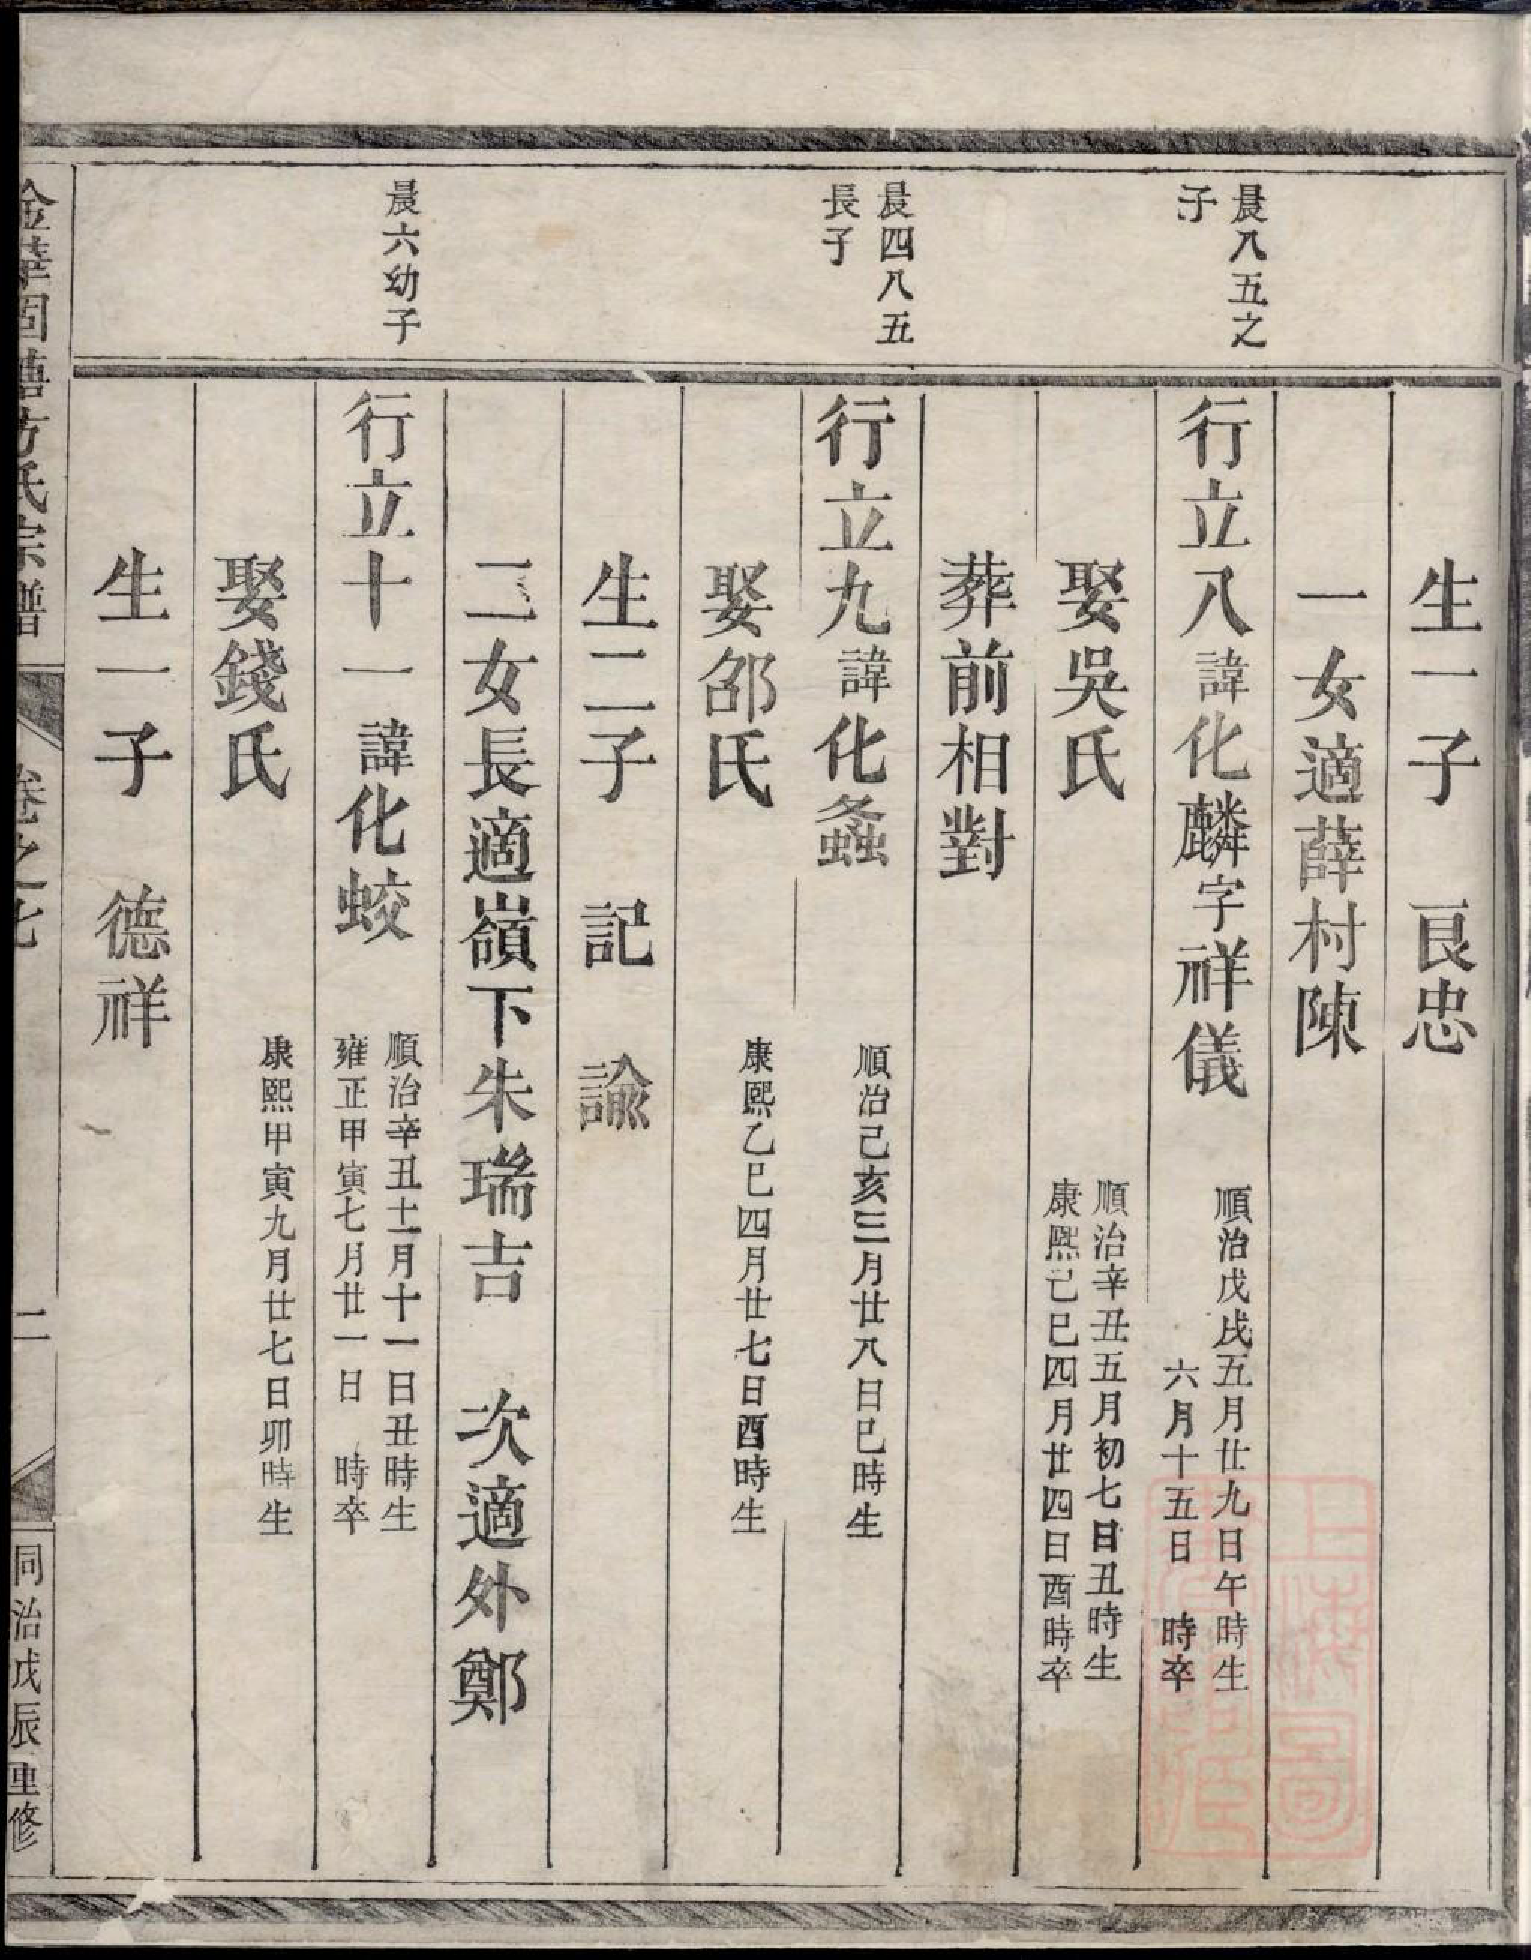 生一子 良忠
一女適薛村陳
晨八五之
子
行立八諱化麟字祥儀
順治戊戌五月廿九日午時生
六月十五日 時卒
娶吳氏
順治辛丑五月初七日丑時生
康熙己巳四月廿四日酉時卒
葬前相對
晨四八五
長子
行立九諱化螽
順治己亥三月廿八日巳時生
娶邵氏
康熙乙巳四月廿七日酉時生
生二子 記 諭
二女長適嶺下朱瑞吉 次適外鄭
晨六幼子
行立十一諱化蛟
順治辛丑月十一日丑時生
雍正甲寅七月廿一日 時卒
娶錢氏
康熙甲寅九月廿七日卯時生
生一子 德祥
金華固塘方氏宗譜
卷之七
二
同治戊辰重修
上海圖